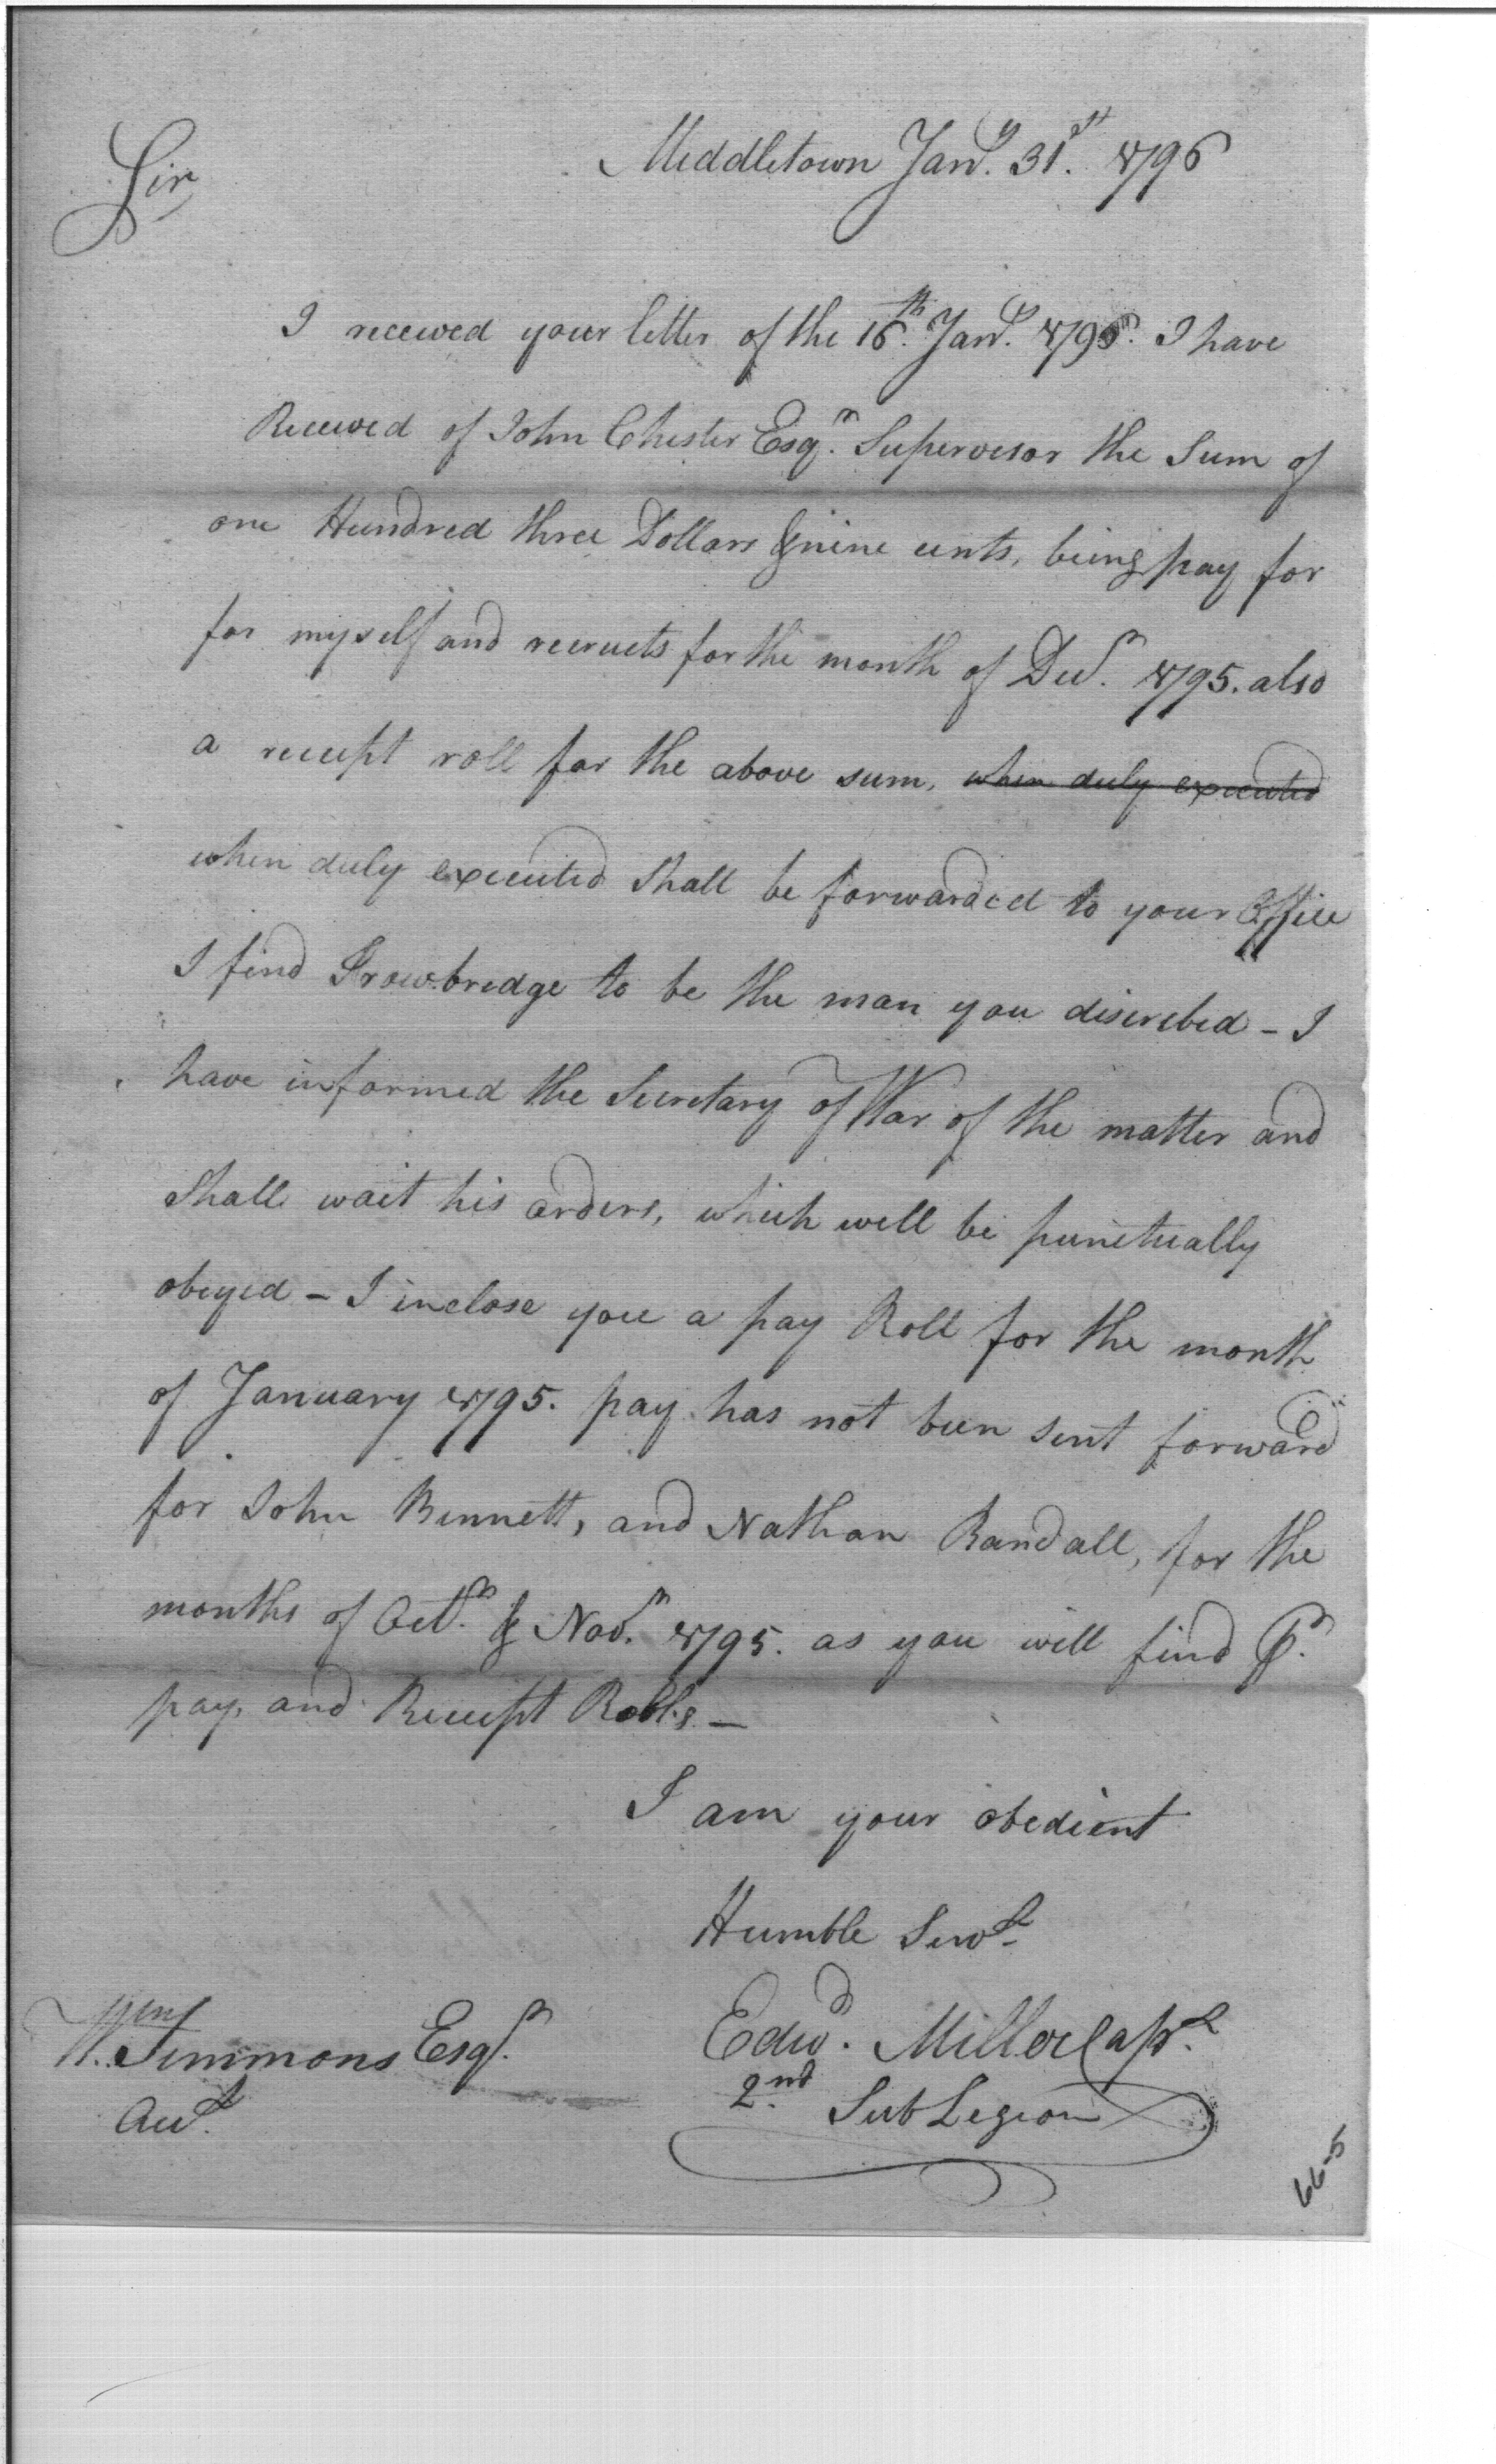 Middletown Jany. 31st. 1796
Sir
I received your letter of the 16th. Jany. 1796. I have
Received of John Chester Esqr. Supervisor the Sum of
one Hundred three Dollars & nine cents, being pay for
for myself and recruits for the month of Decr. 1795. also
a receipt roll for the above sum, when duly executed
when duly executed Shall be forwarded to your Office
I find Trowbridge to be the man you discribed - I
have informed the Secretary of War of the matter and
Shall wait his orders, which will be punctually
obeyed - I inclose you a pay Roll for the month
of January 1795. pay has not been sent forward
for John Bennett, and Nathan Randall, for the
months of Octr. & Novr. 1795. as you will find Pr.
pay, and Receipt Rolls -
I am your obedient
Humble Servt
Edwd. Miller Capt.
2nd. Sub Legion
Wm. Simmons Esqr.
Act.
66-5